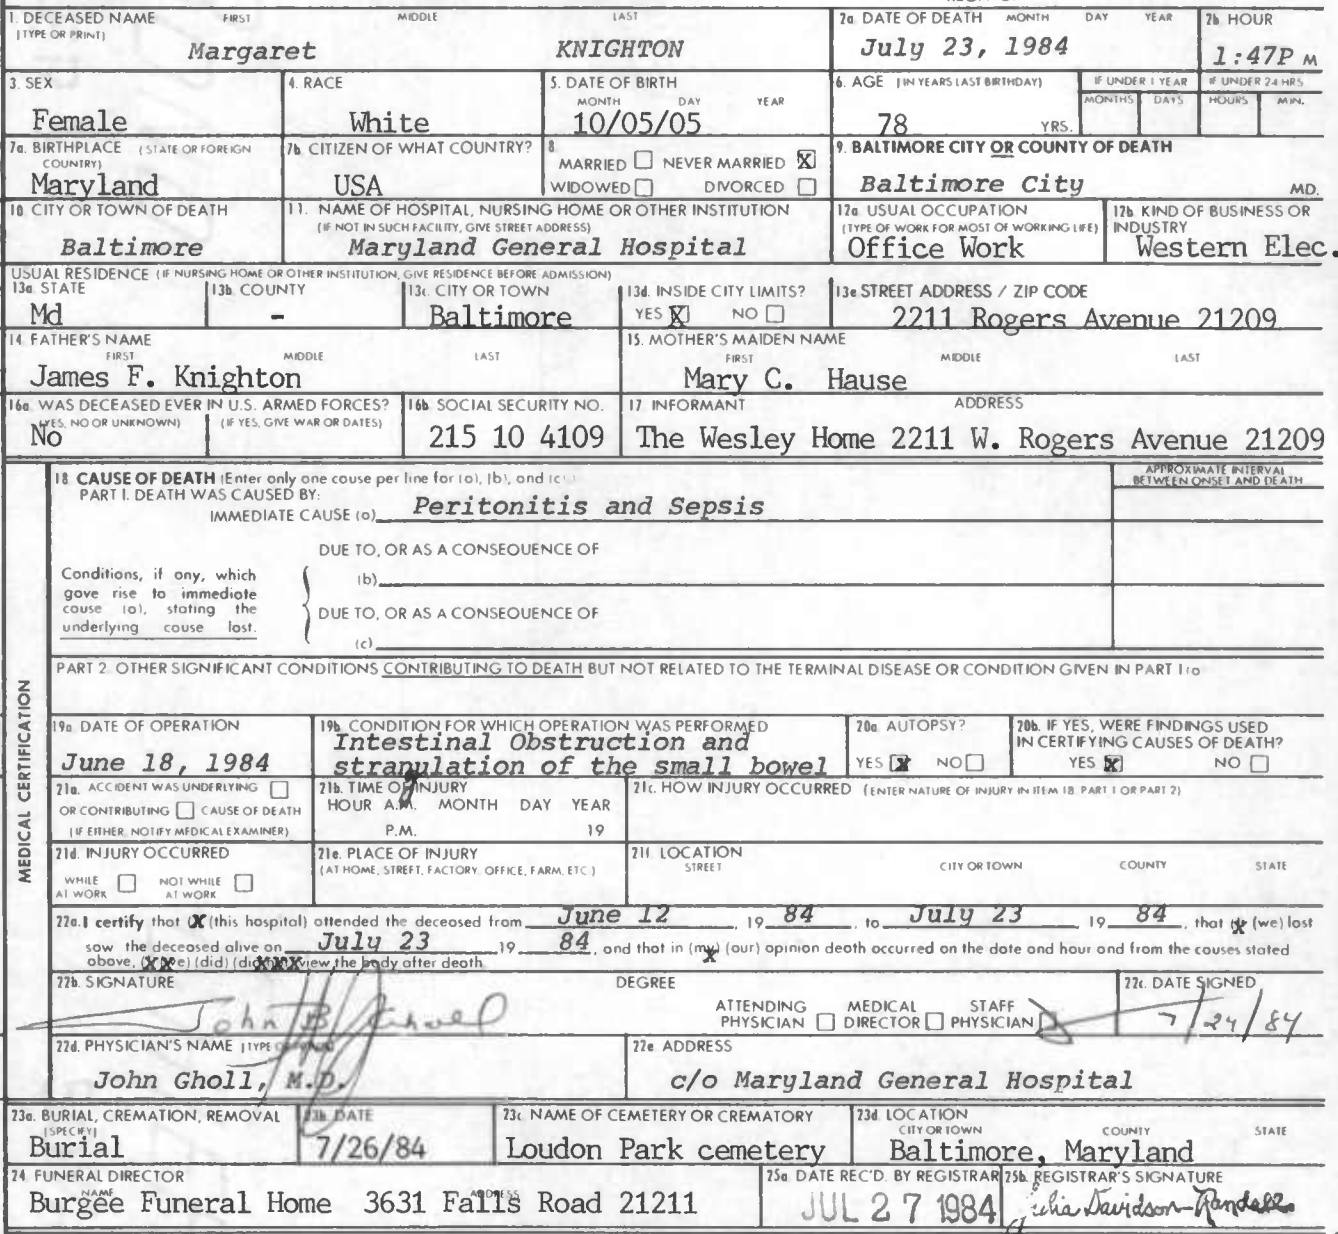 1. DECEASED NAME FIRST MIDDLE LAST
(TYPE OR PRINT)
Margaret KNIGHTON
2a. DATE OF DEATH MONTH DAY YEAR
July 23, 1984
2b. HOUR
1:47P M
3. SEX
Female
4. RACE
White
5. DATE OF BIRTH
MONTH DAY YEAR
10/05/05
6. AGE (IN YEARS LAST BIRTHDAY)
78 YRS.
IF UNDER 1 YEAR
MONTHS DAYS
IF UNDER 24 HRS
HOURS MIN.
7a. BIRTHPLACE (STATE OR FOREIGN
COUNTRY)
Maryland
7b. CITIZEN OF WHAT COUNTRY?
USA
8.
MARRIED NEVER MARRIED X
WIDOWED DIVORCED
9. BALTIMORE CITY OR COUNTY OF DEATH
Baltimore City MD.
10. CITY OR TOWN OF DEATH
Baltimore
11. NAME OF HOSPITAL, NURSING HOME OR OTHER INSTITUTION
(IF NOT IN SUCH FACILITY, GIVE STREET ADDRESS)
Maryland General Hospital
12a. USUAL OCCUPATION
(TYPE OF WORK FOR MOST OF WORKING LIFE)
Office Work
12b. KIND OF BUSINESS OR
INDUSTRY
Western Elec.
USUAL RESIDENCE (IF NURSING HOME OR OTHER INSTITUTION, GIVE RESIDENCE BEFORE ADMISSION)
13a. STATE
Md
13b. COUNTY
-
13c. CITY OR TOWN
Baltimore
13d. INSIDE CITY LIMITS?
YES X NO
13e STREET ADDRESS / ZIP CODE
2211 Rogers Avenue 21209
14. FATHER'S NAME
FIRST MIDDLE LAST
James F. Knighton
15. MOTHER'S MAIDEN NAME
FIRST MIDDLE LAST
Mary C. Hause
16a. WAS DECEASED EVER IN U.S. ARMED FORCES?
(YES, NO OR UNKNOWN) (IF YES, GIVE WAR OR DATES)
No
16b. SOCIAL SECURITY NO.
215 10 4109
17 INFORMANT ADDRESS
The Wesley Home 2211 W. Rogers Avenue 21209
MEDICAL CERTIFICATION
18 CAUSE OF DEATH (Enter only one cause per line for (a), (b), and (c)
PART I. DEATH WAS CAUSED BY:
IMMEDIATE CAUSE (a) Peritonitis and Sepsis
APPROXIMATE INTERVAL
BETWEEN ONSET AND DEATH
DUE TO, OR AS A CONSEQUENCE OF
(b)
Conditions, if any, which
gave rise to immediate
cause (a), stating the
underlying cause last.
DUE TO, OR AS A CONSEQUENCE OF
(c)
PART 2. OTHER SIGNIFICANT CONDITIONS CONTRIBUTING TO DEATH BUT NOT RELATED TO THE TERMINAL DISEASE OR CONDITION GIVEN IN PART 1(a
19a. DATE OF OPERATION
June 18, 1984
19b. CONDITION FOR WHICH OPERATION WAS PERFORMED
Intestinal Obstruction and
strangulation of the small bowel
20a. AUTOPSY?
YES X NO
20b. IF YES, WERE FINDINGS USED
IN CERTIFYING CAUSES OF DEATH?
YES X NO
21a. ACCIDENT WAS UNDERLYING
OR CONTRIBUTING CAUSE OF DEATH
(IF EITHER, NOTIFY MEDICAL EXAMINER)
21b. TIME OF INJURY
HOUR A.M. MONTH DAY YEAR
P.M. 19
21c. HOW INJURY OCCURRED (ENTER NATURE OF INJURY IN ITEM 18, PART 1 OR PART 2)
21d. INJURY OCCURRED
WHILE AT WORK NOT WHILE AT WORK
21e. PLACE OF INJURY
(AT HOME, STREET, FACTORY, OFFICE, FARM, ETC.)
21f. LOCATION
STREET CITY OR TOWN COUNTY STATE
22a. I certify that X (this hospital) attended the deceased from June 12, 19 84, to July 23 19 84, that X (we) last
saw the deceased alive on July 23 19 84, and that in (my) (our) opinion death occurred on the date and hour and from the causes stated
above, (XXe) (did) (did XXX view the body after death
22b. SIGNATURE DEGREE
ATTENDING PHYSICIAN MEDICAL DIRECTOR STAFF PHYSICIAN
22c. DATE SIGNED
7/24/84
22d. PHYSICIAN'S NAME (TYPE
John Gholl, M.D.
22e ADDRESS
c/o Maryland General Hospital
23a. BURIAL, CREMATION, REMOVAL
(SPECIFY)
Burial
23b. DATE
7/26/84
23c. NAME OF CEMETERY OR CREMATORY
Loudon Park cemetery
23d. LOCATION
CITY OR TOWN COUNTY STATE
Baltimore, Maryland
24 FUNERAL DIRECTOR
NAME ADDRESS
Burgee Funeral Home 3631 Falls Road 21211
25a. DATE REC'D. BY REGISTRAR
JUL 27 1984
25b. REGISTRAR'S SIGNATURE
Julia Davidson-Randall